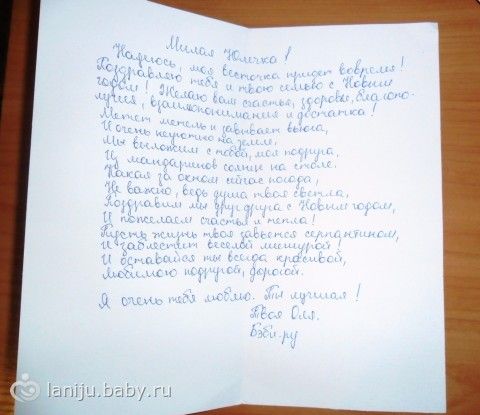 Милая Юлечка!
Надеюсь, моя весточка придет вовремя!
Поздравляю тебя и твою семью с Новым
годом! Желаю вам счастья, здоровья, благопо-
лучия, взаимопонимания и достатка!
Метет метель и завывает вьюга,
И очень неуютно на земле,
Мы выложим с тобой, моя подруга,
Из мандаринов солнце на столе.
Какая за окном сейчас погода,
Не важно, ведь душа твоя светла,
Поздравим мы друг друга с Новым годом,
И пожелаем счастья и тепла!
Пусть жизнь твоя завьется серпантином,
И заблестит веселой мишурой!
И оставайся ты всегда красивой,
Любимою подругой, дорогой.
Я очень тебя люблю. Ты лучшая!
Твоя Оля.
Бэби.ру
laniju.baby.ru